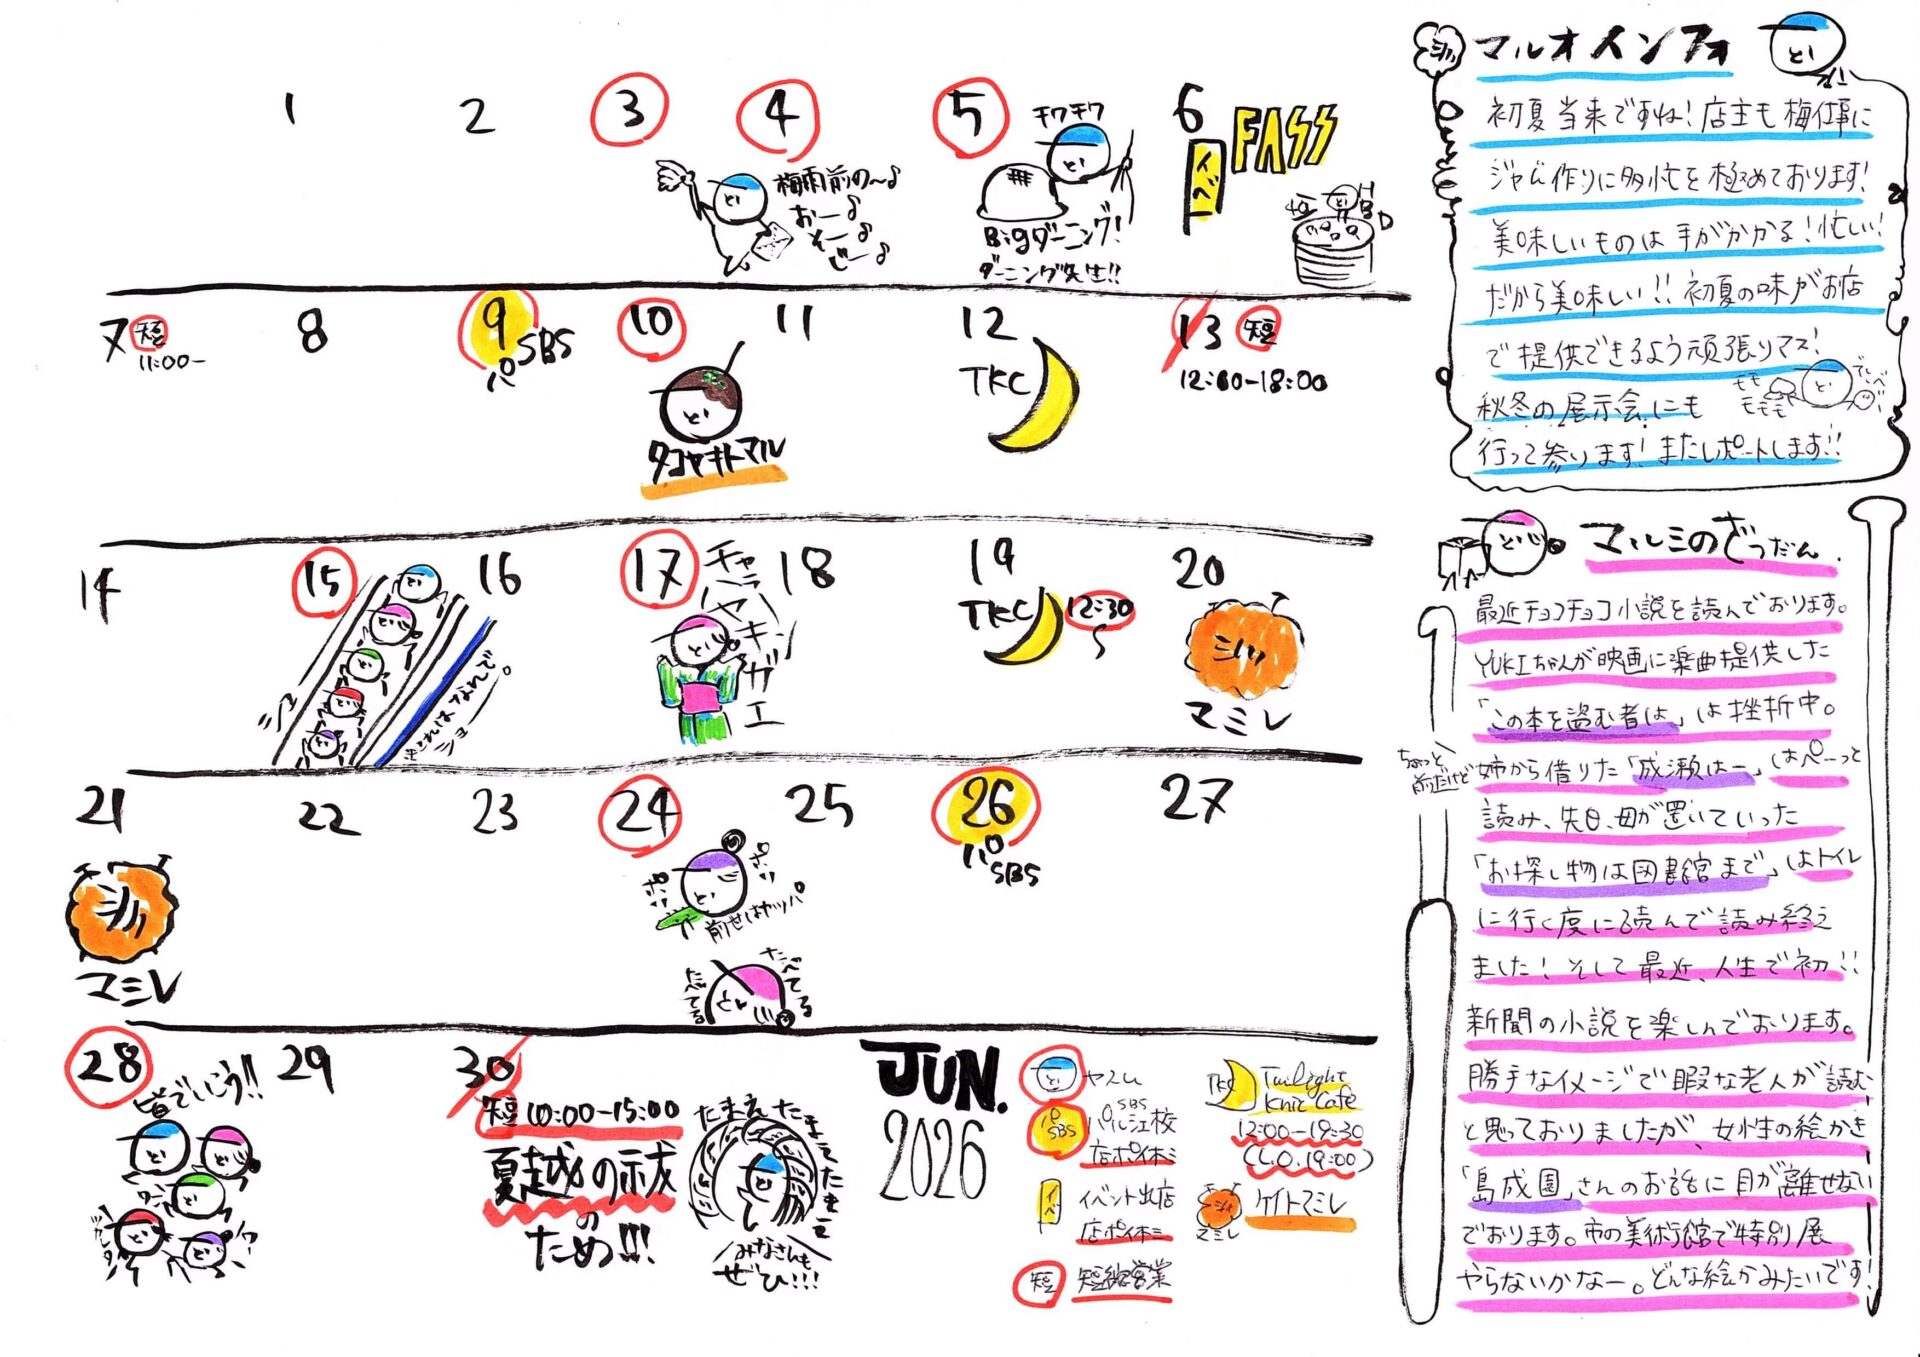 1
2
3
4
梅雨前の〜♪
おー♪
そー♪
じー♪
5
チクチク
Bigダーニング!
ダーニング先生!!
6
イベ
FASS
7
短
11:00-
8
9
パSBS
10
タコヤキトマル
11
12
TKC
13
短
12:00-18:00
14
15
16
17
18
19
TKC
12:30
〜
20
マミレ
21
マミレ
22
23
24
ポリポリ
前世はカッパ
たべてる
たべてる
25
26
パSBS
27
28
皆でいこう!!
29
30
短 10:00-15:00
夏越の祓
の
ため!!!
みなさんも
ぜひ!!!
JUN.
2026
ヤスム
パSBS
SBS
パルシ江校
店ポイホミ
イベ
イベント出店
店ポイホミ
短
短縮営業
TKC
Twilight
Knit Cafe
12:00-19:30
(L.O.19:00)
マミレ
ケイトマミレ
マルオインフォ
初夏当来ですね!店主も梅仕事に
ジャム作りに多忙を極めております!
美味しいものは手がかかる!忙しい!
だから美味しい!!初夏の味がお店
で提供できるよう頑張リマス!
秋冬の展示会にも
行って参ります!またレポートします!!
マルミのざつだん.
最近チョコチョコ小説を読んでおります。
YUKIちゃんが映画に楽曲提供した
「この本を盗む者は」は挫折中。
ちょっと前だけど
姉から借りた「成瀬はー」はペーっと
読み、先日、母が置いていった
「お探し物は図書館まで」はトイレ
に行く度に読んで読み終え
ました!そして最近、人生で初!!
新聞の小説を楽しんでおります。
勝手なイメージで暇な老人が読む
と思っておりましたが、女性の絵かき
「島成園」さんのお話に目が離せない
でおります。市の美術館で特別展
やらないかなー。どんな絵かみたいです!